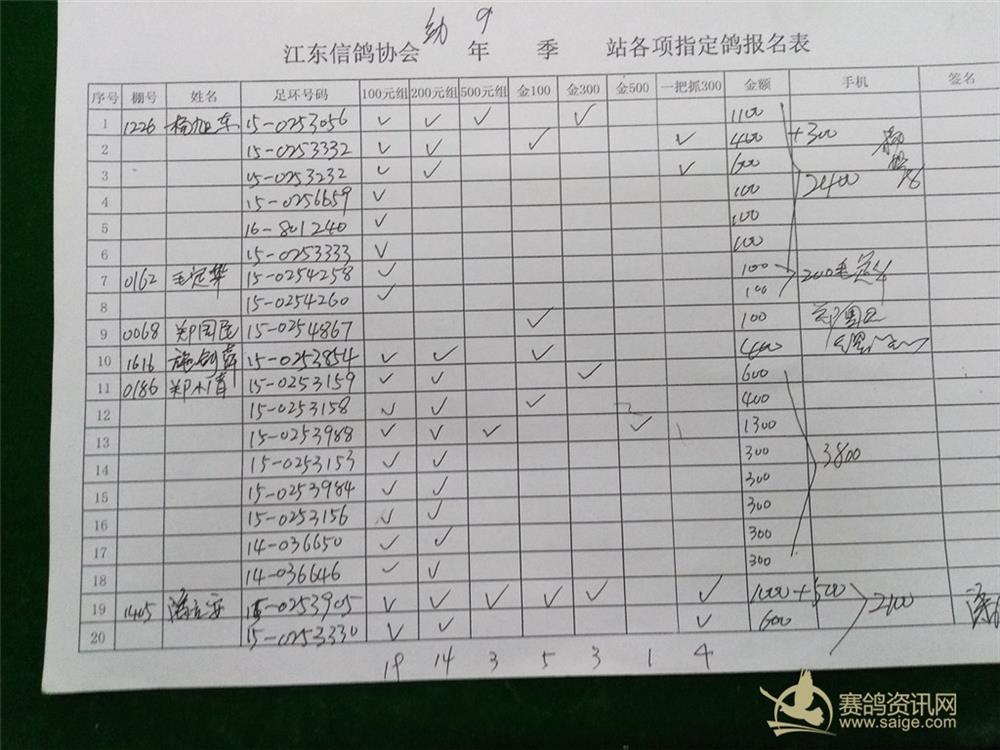 幼 9
江东信鸽协会 年 季 站各项指定鸽报名表
序号 棚号 姓名 足环号码 100元组 200元组 500元组 金100 金300 金500 一把抓300 金额 手机 签名
1 1226 15-0253056 ✓ ✓ ✓ ✓ 1100
2 15-0253332 ✓ ✓ ✓ ✓ 400 +300
3 15-0253232 ✓ ✓ ✓ 600 2400
4 15-0256659 ✓ 100
5 16-801240 ✓ 100
6 15-0253333 ✓ 100
7 0162 毛冠华 15-0254258 ✓ 100 200毛冠华
8 15-0254260 ✓ 100
9 0068 郑国民 15-0254867 ✓ 100 郑国民
10 1616 15-0253854 ✓ ✓ ✓ 400
11 0186 15-0253159 ✓ ✓ ✓ 600
12 15-0253158 ✓ ✓ ✓ 400
13 15-0253988 ✓ ✓ ✓ ✓ 1300
14 15-0253153 ✓ ✓ 300 3800
15 15-0253984 ✓ ✓ 300
16 15-0253156 ✓ ✓ 300
17 14-036650 ✓ ✓ 300
18 14-036646 ✓ ✓ 300
19 1405 15-0253905 ✓ ✓ ✓ ✓ ✓ ✓ 1000+500 2100
20 15-0253330 ✓ ✓ ✓ 600
19 14 3 5 3 1 4
赛鸽资讯网
www.saige.com